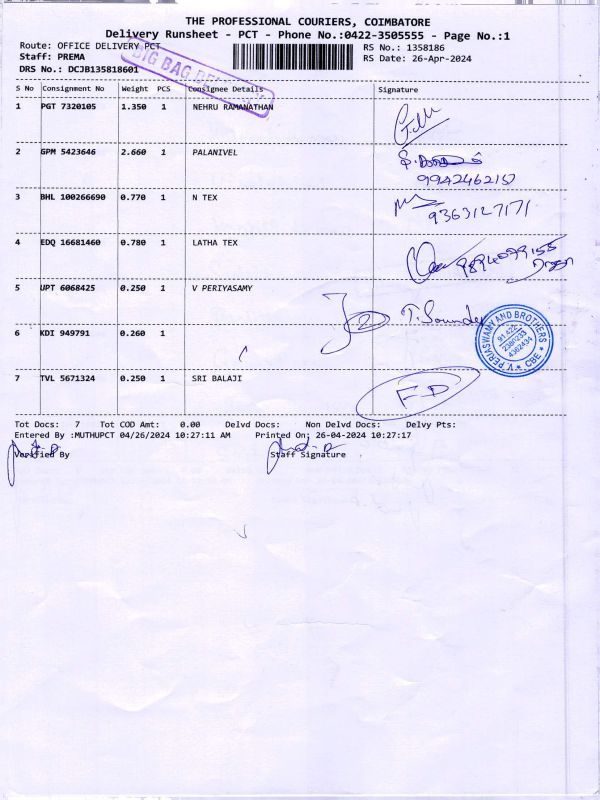 THE PROFESSIONAL COURIERS, COIMBATORE
Delivery Runsheet - PCT - Phone No.:0422-3505555 - Page No.:1
Route: OFFICE DELIVERY PCT
RS No.: 1358186
Staff: PREMA
RS Date: 26-Apr-2024
DRS No.: DCJB135818601
BIG BAG
S No Consignment No Weight PCS Consignee Details Signature
1 PGT 7320105 1.350 1 NEHRU RAMANATHAN
2 GPM 5423646 2.660 1 PALANIVEL
3 BHL 100266690 0.770 1 N TEX
9363127171
4 EDQ 16681460 0.780 1 LATHA TEX
5 UPT 6068425 0.250 1 V PERIYASAMY
2 T. Sounder
V. PERIASWAMY AND BROTHERS * CBE *
6 KDI 949791 0.260 1
7 TVL 5671324 0.250 1 SRI BALAJI
F D
Tot Docs: 7 Tot COD Amt: 0.00 Delvd Docs: Non Delvd Docs: Delvy Pts:
Entered By :MUTHUPCT 04/26/2024 10:27:11 AM Printed On: 26-04-2024 10:27:17
Verified By Staff Signature